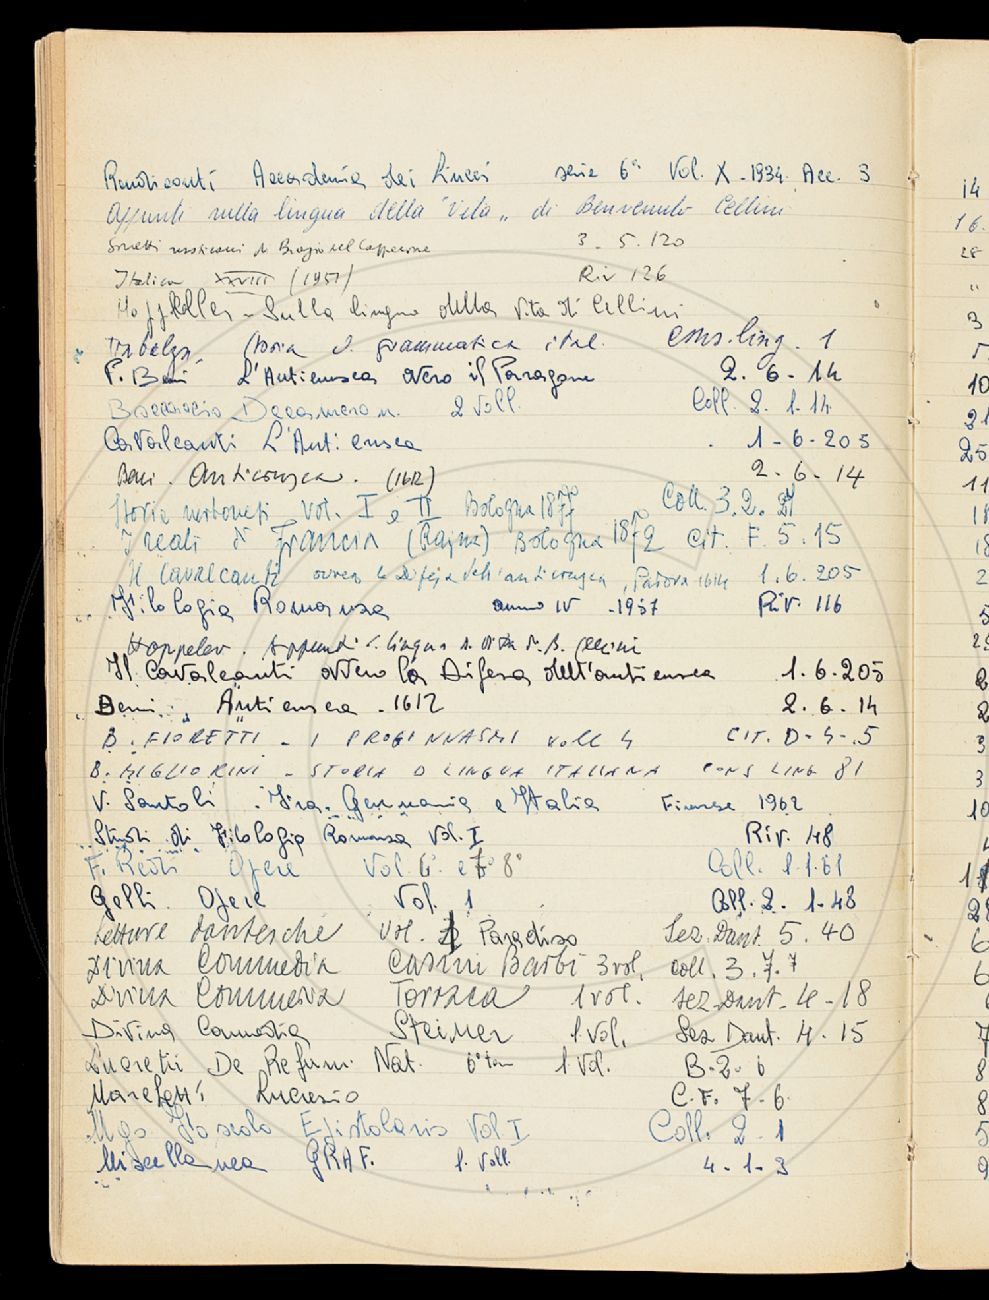 Rendiconti Accademia dei Lincei serie 6ª Vol. X - 1934 Acc. 3
Appunti sulla lingua della "Vita" di Benvenuto Cellini
Sonetti di Biagio del Capperone 3. 5. 120
Italica XXVIII (1951) Riv 126
Hoppeller - Sulla lingua della Vita di Cellini
Trabalza, Storia d. grammatica ital. Cons. ling. 1
P. Beni L'Anticrusca ovvero il Paragone 2. 6 - 14
Boccaccio Decameron. 2 Voll. Coll. 2. 1. 14
Cavalcanti L'Anticrusca 1 - 6 - 205
Beni. Anticrusca. (1612) 2 - 6 - 14
Storie nerbonesi Vol. I e II Bologna 1877 Coll. 3. 2.
I reali di Francia (Rajna) Bologna 1872 Cit. F. 5. 15
Il Cavalcanti ovvero la Difesa dell'anticrusca, Padova 1614 1. 6. 205
Filologia Romanza anno IV - 1957 Riv. 116
Hoppeler. Appunti s. lingua d. vita di B. Cellini
Il Cavalcanti ovvero la Difesa dell'anticrusca 1. 6. 205
Beni. Anticrusca - 1612 2. 6. 14
B. FIORETTI - I PROGINNASMI voll 4 CIT. D - 4 - 5
B. MIGLIORINI - STORIA D LINGUA ITALIANA CONS LING 81
V. Santoli. Fra Germania e Italia Firenze 1962
Studi di Filologia Romanza Vol. I Riv. 48
F. Redi Opere Vol. 6° e 7° 8° Coll. 1. 1. 61
Gelli. Opere Vol. 1 Coll. 2. 1 - 48
Letture dantesche Vol. Paradiso Sez. Dant. 5. 40
Divina Commedia Casini Barbi 3 vol. Coll. 3. 7. 7
Divina Commedia Torraca 1 vol. Sez. Dant - 4 - 18
Divina Commedia Steiner 1 Vol. Sez Dant. 4 - 15
Lucretii De Rerum Nat. 1 Vol. B - 2 - 6
Marchetti Lucrezio C. F. 7 - 6
Ugo Foscolo Epistolario Vol I Coll. 2 - 1
Miscellanea GRAF. 1. Voll. 4 - 1 - 3